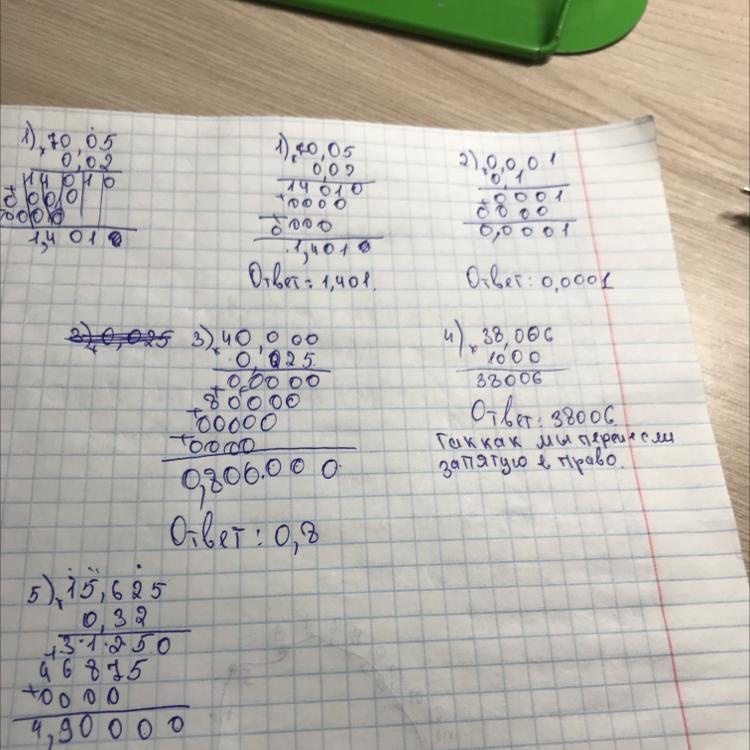 1) × 70,05
0,02
14 010
+ 0000
0000
1,4010
1) × 70,05
0,02
14010
+ 0000
+ 000
1,4010
Ответ = 1,401.
2) × 0,001
0,1
+ 0001
0000
0,0001
Ответ: 0,0001
3) × 0,025
3) × 40,000
0,025
+ 00000
+ 80000
+ 00000
+ 0000
0,800.000
Ответ: 0,8
4) × 38,006
1000
38006
Ответ: 38006
так как мы перенесли
запятую в право.
5) × 15,625
0,32
+ 31250
46875
+ 0000
4,90000